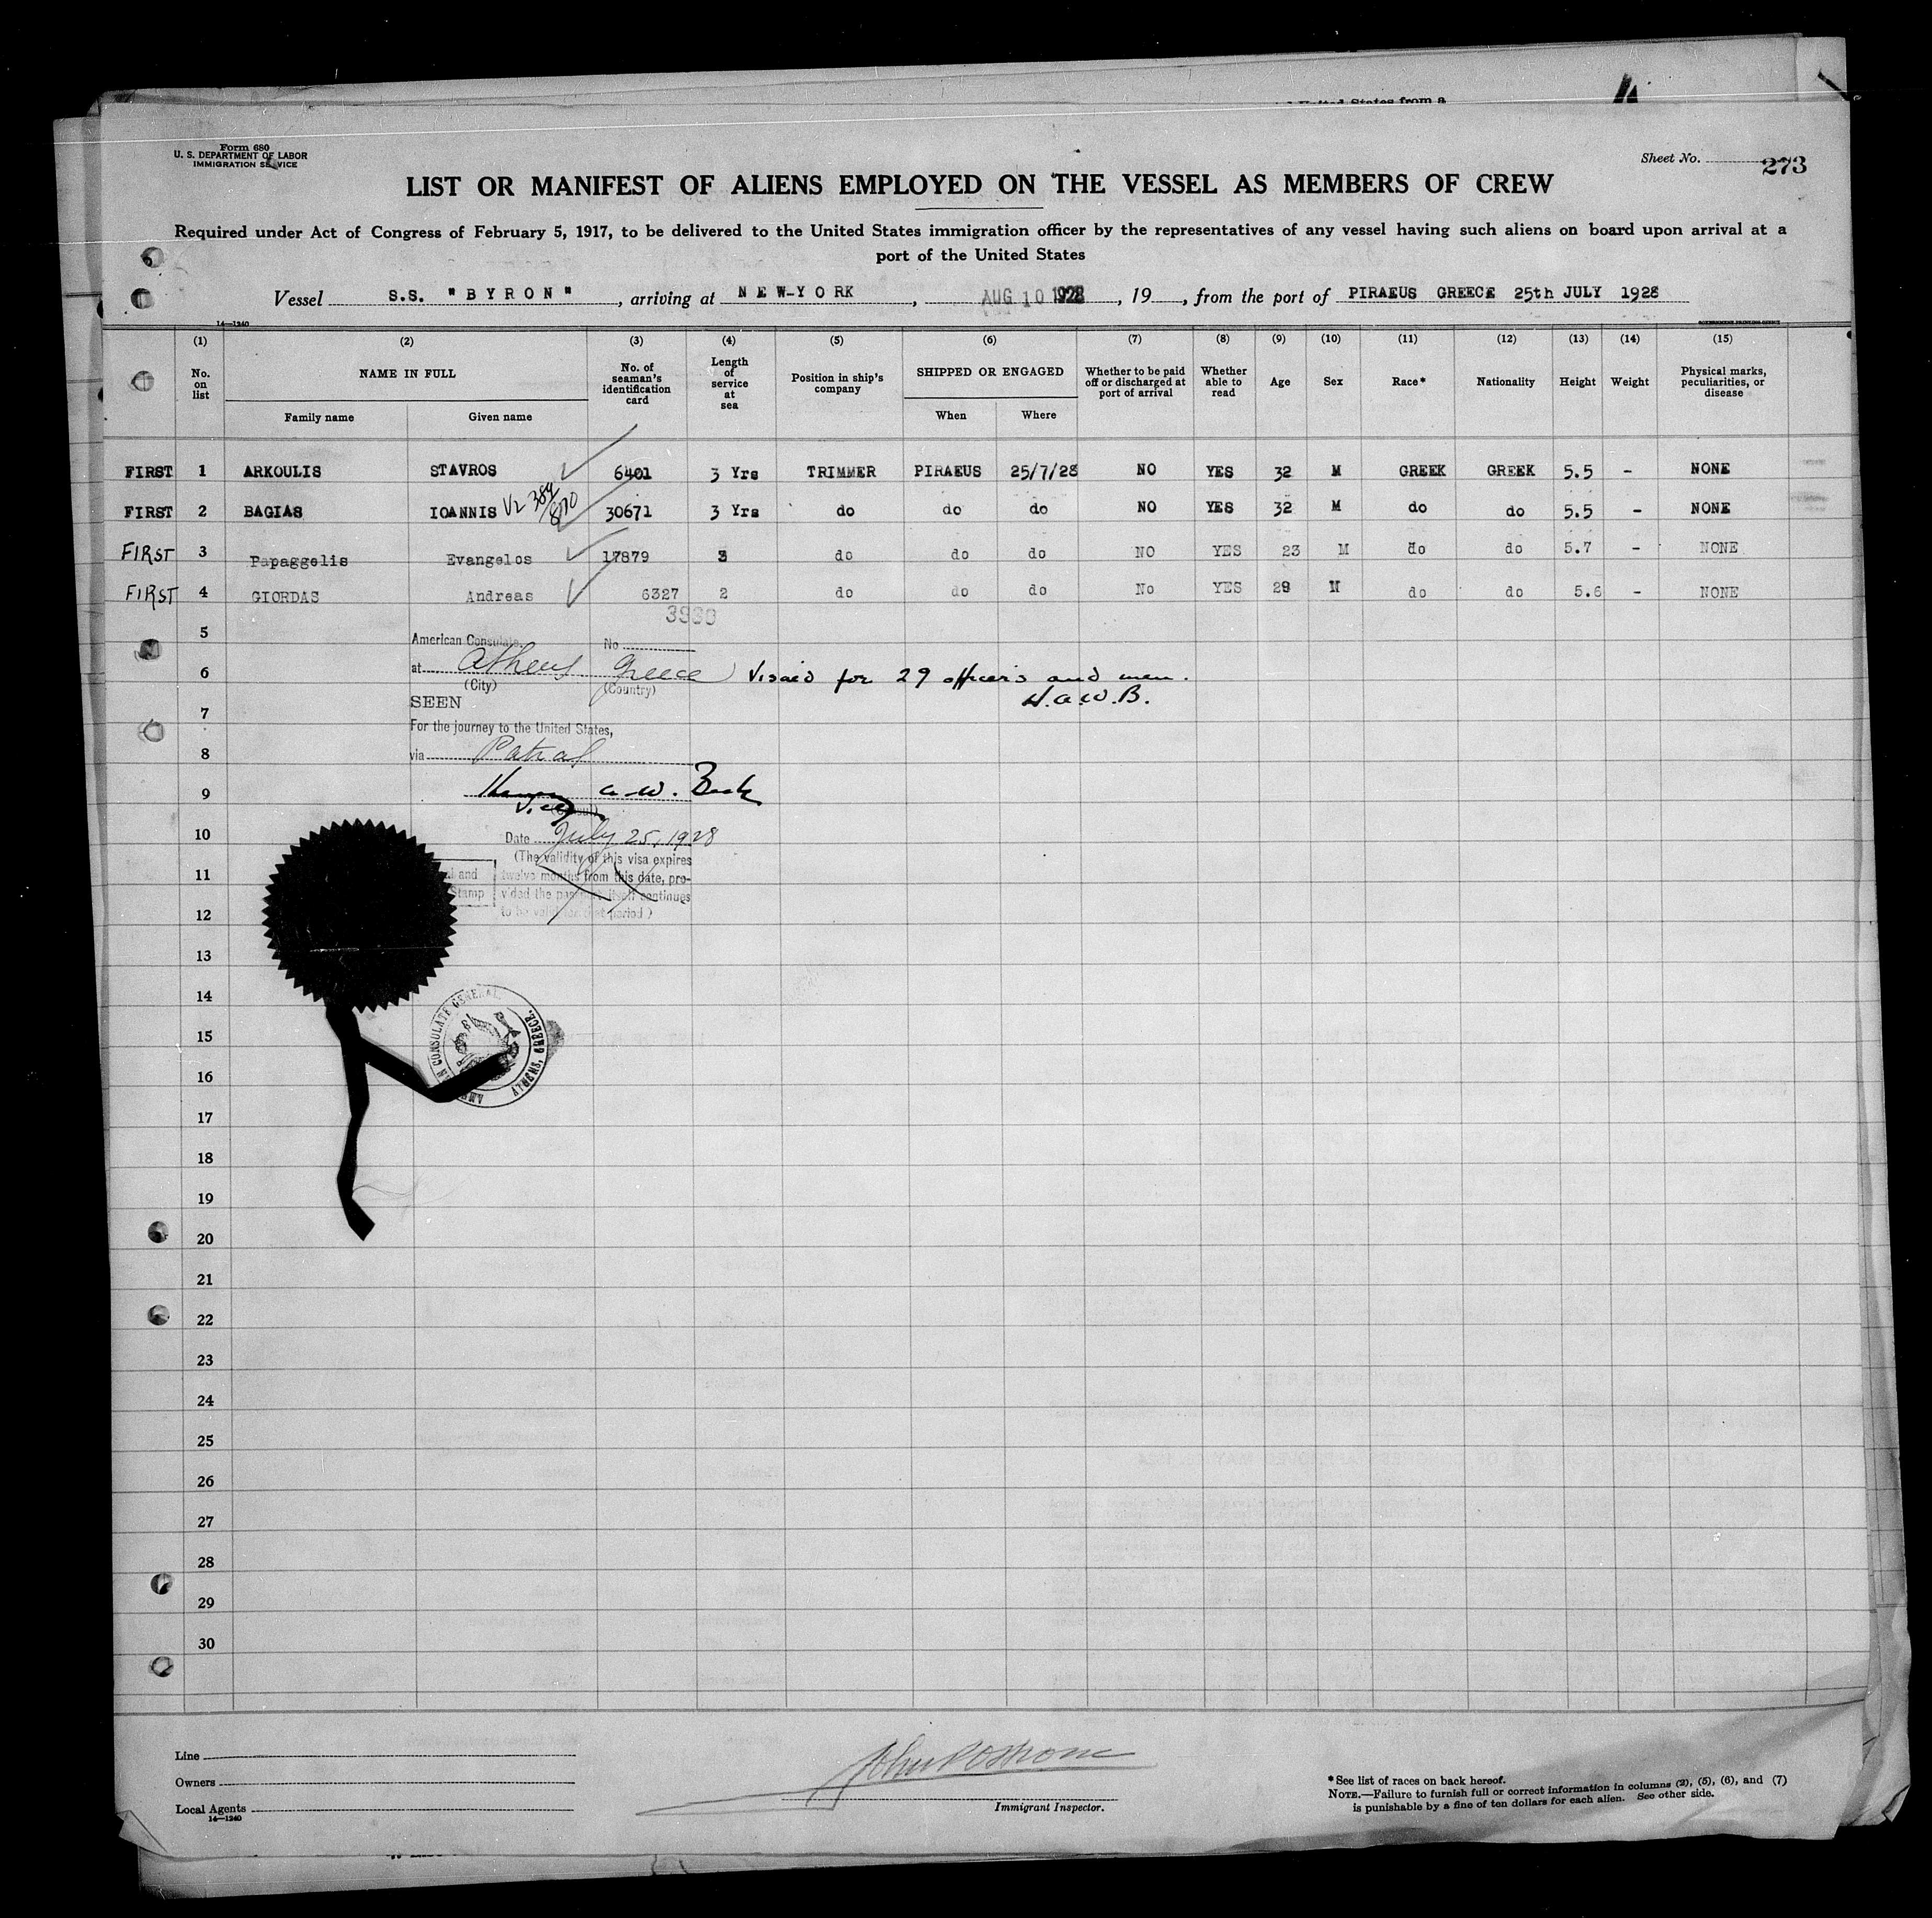 Form 680
U. S. DEPARTMENT OF LABOR
IMMIGRATION SERVICE
Sheet No. 273
LIST OR MANIFEST OF ALIENS EMPLOYED ON THE VESSEL AS MEMBERS OF CREW
Required under Act of Congress of February 5, 1917, to be delivered to the United States immigration officer by the representatives of any vessel having such aliens on board upon arrival at a
port of the United States
Vessel S.S. "BYRON", arriving at NEW-YORK, AUG 10 1928, 19, from the port of PIRAEUS GREECE 25th JULY 1928
14—1240 GOVERNMENT PRINTING OFFICE
(1) (2) (3) (4) (5) (6) (7) (8) (9) (10) (11) (12) (13) (14) (15)
No. on list NAME IN FULL Family name Given name No. of seaman's identification card Length of service at sea Position in ship's company SHIPPED OR ENGAGED When Where Whether to be paid off or discharged at port of arrival Whether able to read Age Sex Race* Nationality Height Weight Physical marks, peculiarities, or disease
FIRST 1 ARKOULIS STAVROS 6401 3 Yrs TRIMMER PIRAEUS 25/7/28 NO YES 32 M GREEK GREEK 5.5 - NONE
FIRST 2 BAGIAS IOANNIS V2 384/870 30671 3 Yrs do do do NO YES 32 M do do 5.5 - NONE
FIRST 3 Papaggelis Evangelos 17879 3 do do do NO YES 23 M do do 5.7 - NONE
FIRST 4 GIORDAS Andreas 6327 2 do do do No YES 28 M do do 5.6 - NONE
5
American Consulate, No
at Athens Greece Visaed for 29 officers and men.
6
(City) (Country) H.A.W.B.
SEEN
7
For the journey to the United States,
8
via Patras
9
A.W. Beck
Vice
10
Date July 25, 1928
(The validity of this visa expires
11
twelve months from this date, pro-
vided the passport itself continues
to be valid for that period)
and
Stamp
12
13
14
AMERICAN CONSULATE GENERAL. ATHENS, GREECE.
15
16
17
18
19
20
21
22
23
24
25
26
27
28
29
30
Line
Owners
Local Agents
14—1240
Immigrant Inspector.
*See list of races on back hereof.
NOTE.—Failure to furnish full or correct information in columns (2), (5), (6), and (7)
is punishable by a fine of ten dollars for each alien. See other side.